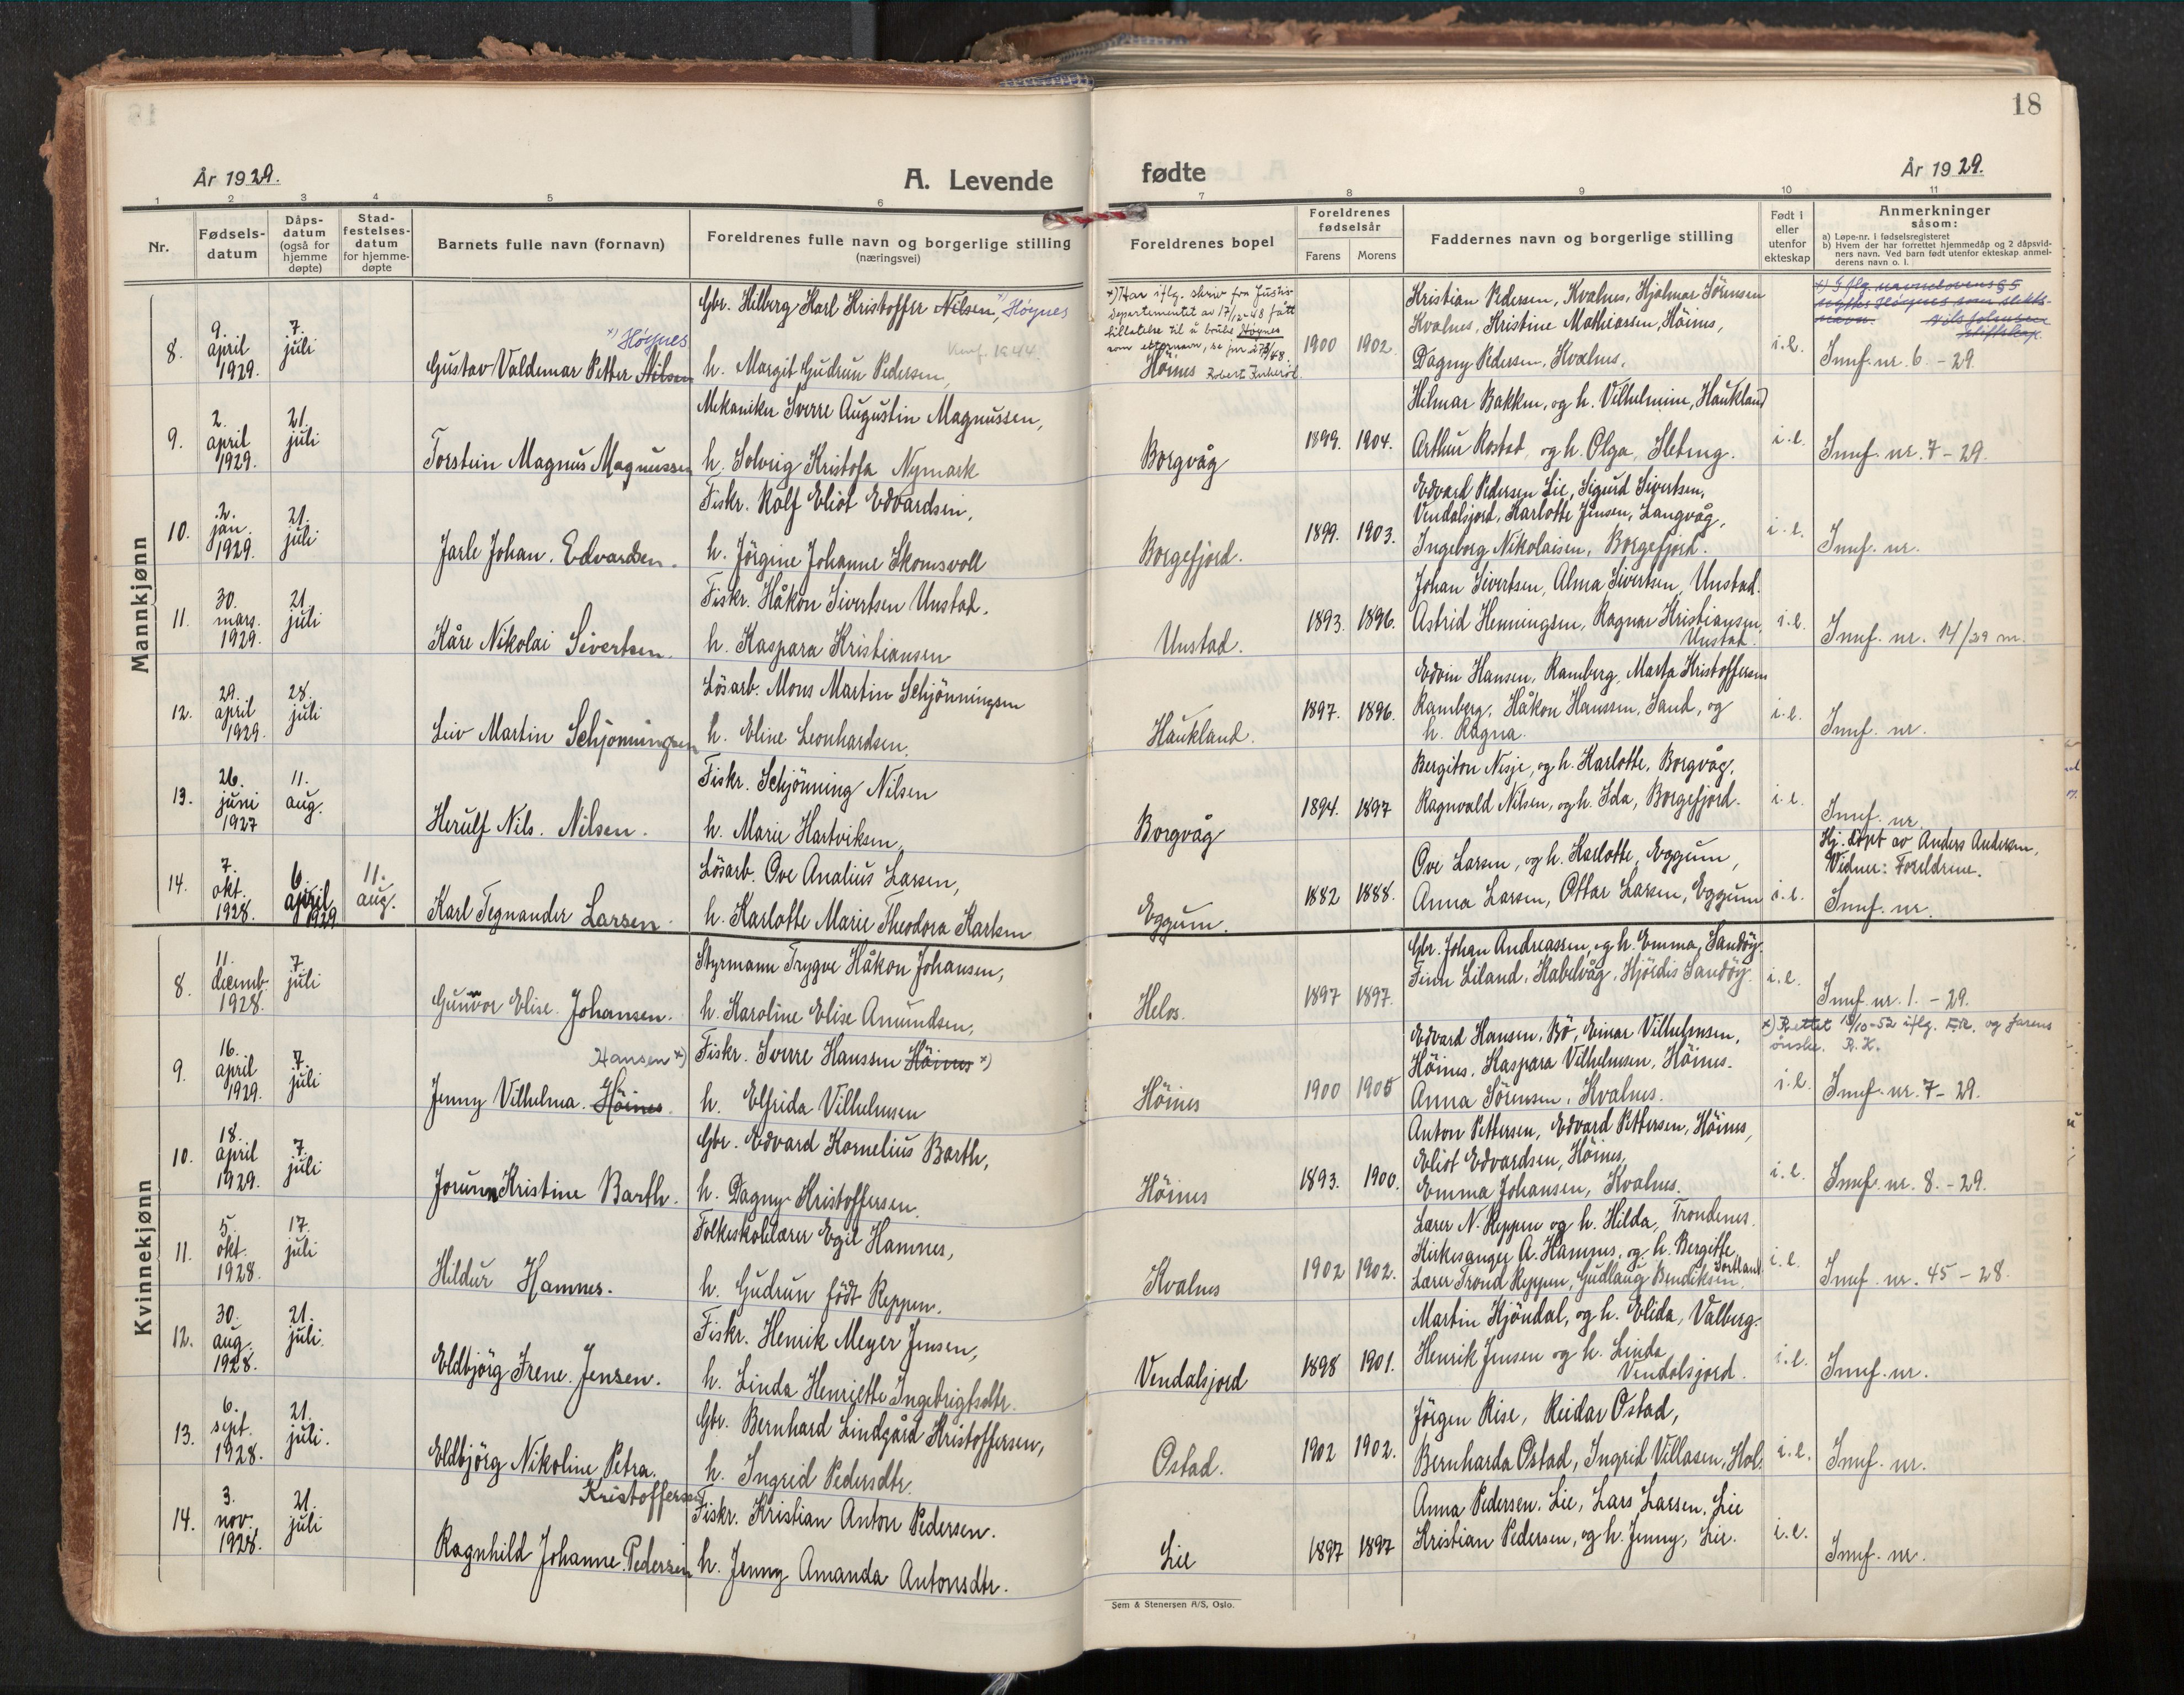 18
År 1929.
A. Levende
fødte
År 1929.
1 2 3 4 5 6 7 8 9 10 11
Nr.
Fødsels-
datum
Dåps-
datum
(også for
hjemme
døpte)
Stad-
festelses-
datum
for hjemme-
døpte
Barnets fulle navn (fornavn)
Foreldrenes fulle navn og borgerlige stilling
(næringsvei)
Foreldrenes bopel
Foreldrenes
fødselsår
Farens Morens
Faddernes navn og borgerlige stilling
Født i
eller
utenfor
ekteskap
Anmerkninger
såsom:
a) Løpe-nr. i fødselsregisteret
b) Hvem der har forrettet hjemmedåp og 2 dåpsvid-
ners navn. Ved barn født utenfor ekteskap anmel-
derens navn o. l.
Mannkjønn
8.
9.
april
1929.
7.
juli
x) Höynes
Gustav Valdemar Petter Nilsen
Gbr. Hilberg Karl Kristoffer Nilsen, x) Höynes
Konf. 1944.
h. Margit Gudrun Pedersen,
x) Har iflg. skriv fra Justis-
departementet av 17/12-48 fått
tillatelse til å bruke Høynes
som etternavn, se jnr. 273/48.
Höines
1900 1902.
Kristian Pedersen, Kvalnes, Hjalmar Sörensen
Kvalnes, Kristine Mathiassen, Höines,
Dagny Pedersen, Kvalnes.
i.e.
x) Iflg. navnelovens § 5
Høynes som slekts-
navn.
Innf. nr. 6. - 29.
9.
2.
april
1929.
21.
juli
Torstein Magnus Magnussen
Mekaniker Sverre Augustin Magnussen,
h. Solveig Kristofa Nymark
Borgvåg
1899. 1904.
Hilmar Bakken, og h. Vilhelmine, Haukland
Arthur Rostad, og h. Olga, Sletng.
i.e.
Innf. nr. 7 - 29.
10.
2.
jan.
1929.
21.
juli
Jarle Johan. Edvardsen.
Fiskr. Rolf Eliot Edvardsen,
h. Jörgine Johanne Skomsvoll
Borgefjord.
1899. 1903.
Edvard Pedersen Lie, Sigurd Sivertsen,
Vendalsjord, Karlotte Jensen, Langvåg,
Ingeborg Nikolaisen, Borgefjord.
i.e.
Innf. nr.
11.
30.
mars.
1929.
21.
juli
Kåre Nikolai Sivertsen.
Fiskr. Håkon Sivertsen Unstad.
h. Kaspara Kristiansen
Unstad.
1893. 1896.
Johan Sivertsen, Alma Sivertsen, Unstad.
Astrid Henningsen, Ragnar Kristiansen,
Unstad.
i.e.
Innf. nr. 14/29 m.
12.
29.
april
1929.
28.
juli
Leiv Martin Schjönningsen
Lösarb. Mons Martin Schjönningsen
h. Eline Leonhardsen.
Haukland.
1897. 1896.
Edvin Hansen, Ramberg, Marta Kristoffersen
Ramberg, Håkon Hanssen, Sand, og
h. Ragna.
i.e.
Innf. nr.
13.
26.
juni
1927
11.
aug.
Herulf Nils. Nilsen.
Fiskr. Schjönning Nilsen
h. Marie Hartviksen,
Borgvåg
1894. 1897
Bergiton Nesje, og h. Karlotte, Borgvåg.
Ragnvald Nilsen, og h. Ida, Borgefjord.
i.e.
Innf. nr.
14.
7.
okt.
1928.
6.
april
1929
11.
aug.
Karl Tegnander Larsen.
Lösarb. Ove Analius Larsen,
h. Karlotte Marie Theodora Karlsen
Eggum.
1882 1888.
Ove Larsen, og h. Karlotte, Eggum,
Anna Larsen, Ottar Larsen, Eggum
i.e.
Hj. døpt av Anders Andersen,
Vidner: Foreldrene.
Innf. nr.
Kvinnekjønn
8.
11.
decemb.
1928.
7.
juli
Gunvor Elise. Johansen.
Styrmann Trygve Håkon Johansen,
h. Karoline Elise Amundsen,
Helos.
1897 1897.
Gbr. Johan Andreassen, og h. Emma, Sandöy.
Finn Liland, Kabelvåg, Hjördis Sandöy.
i.e.
Innf. nr. 1. - 29.
9.
16.
april
1929.
7.
juli
Hansen x)
Jenny Vilhelma. Höines.
Fiskr. Sverre Hanssen Höines x)
h. Elfrida Vilhelmsen
Höines
1900 1905
Edvard Hansen, Bö, Einar Vilhelmsen,
Höines, Kaspara Vilhelmsen, Höines.
Anna Sörensen, Kvalnes.
i.e.
x) Rettet 18/10-52 iflg. F.R. og farens
ønske. R.K.
Innf. nr. 7 - 29.
10.
18.
april
1929.
7.
juli
Jorunn Kristine Barth.
Gbr. Edvard Kornelius Barth,
h. Dagny Kristoffersen.
Höines
1893. 1900.
Anton Pettersen, Edvard Pettersen, Höines,
Eliot Edvardsen, Höines,
Emma Johansen, Kvalnes.
i.e.
Innf. nr. 8. - 29.
11.
5.
okt.
1928.
17.
juli
Hildur Hamnes.
Folkeskolelærer Egil Hamnes,
h. Gudrun födt Reppen.
Kvalnes
1902 1902.
Lærer N. Reppen og h. Hilda, Trondenes.
Kirkesanger A. Hamnes, og h. Bergitte,
Sortland
Lærer Trond Reppen, Gudlaug Bendiksen.
i.e.
Innf. nr. 45 - 28.
12.
30.
aug.
1928.
21.
juli.
Eldbjörg Irene. Jensen.
Fiskr. Henrik Meyer Jensen,
h. Linda Henriette Ingebrigtsdtr.
Vendalsjord
1898 1901.
Martin Kjöndal, og h. Elida, Valberg.
Henrik Jensen og h. Linda
Vendalsjord.
i.e.
Innf. nr.
13.
6.
sept.
1928.
21.
juli.
Eldbjörg Nikoline Petra.
Kristoffersen
Gbr. Bernhard Lindgård Kristoffersen,
h. Ingrid Pedersdtr.
Ostad.
1902 1902.
Jörgen Rise, Reidar Ostad,
Bernharda Ostad, Ingrid Villasen, Hol.
i.e.
Innf. nr.
14.
3.
nov.
1928.
21.
juli
Ragnhild Johanne. Pedersen
Fiskr. Kristian Anton Pedersen.
h. Jenny Amanda Antonsdtr.
Lie
1897 1897
Anna Pedersen. Lie, Lars Larsen, Lie
Kristian Pedersen, og h. Jenny, Lie.
i.e.
Innf. nr.
Sem & Stenersen A/S, Oslo.